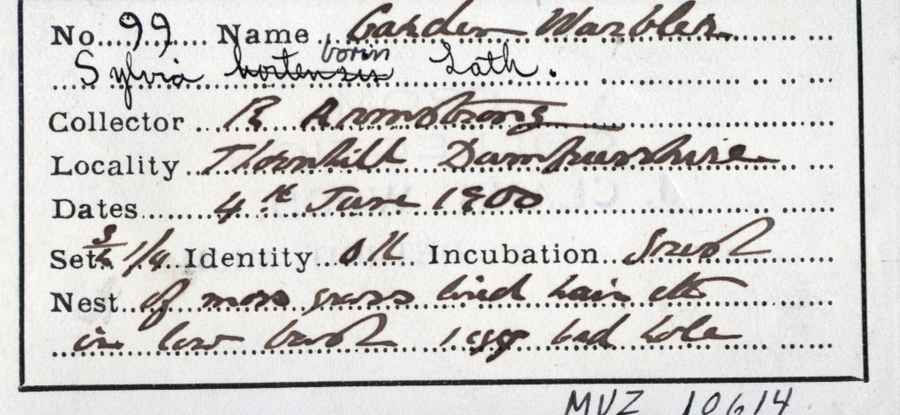 No. 99 Name Garden Warbler
borin
Sylvia hortensis Lath.
Collector R Armstrong
Locality Thornhill Dumfriesshire
Dates 4th June 1900
Set 1/4 Identity all Incubation fresh
Nest of moss grass lined hair etc
in low bush 1 egg bad hole
MVZ 10614